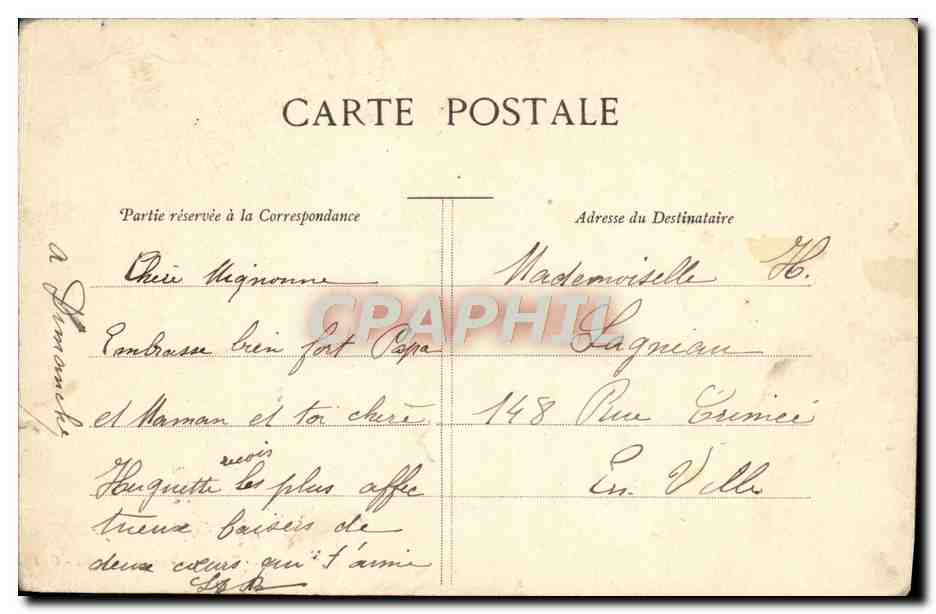 CARTE POSTALE
Partie réservée à la Correspondance
Adresse du Destinataire
a Dimanche
Chère Mignonne
Embrasse bien fort Papa
et Maman et toi chère
recois
Huguette les plus affec
tueux baisers de
deux cœurs qui t'aime
Mademoiselle H.
Lagneau
148 Rue Crimée
En Ville
CPAPHIL